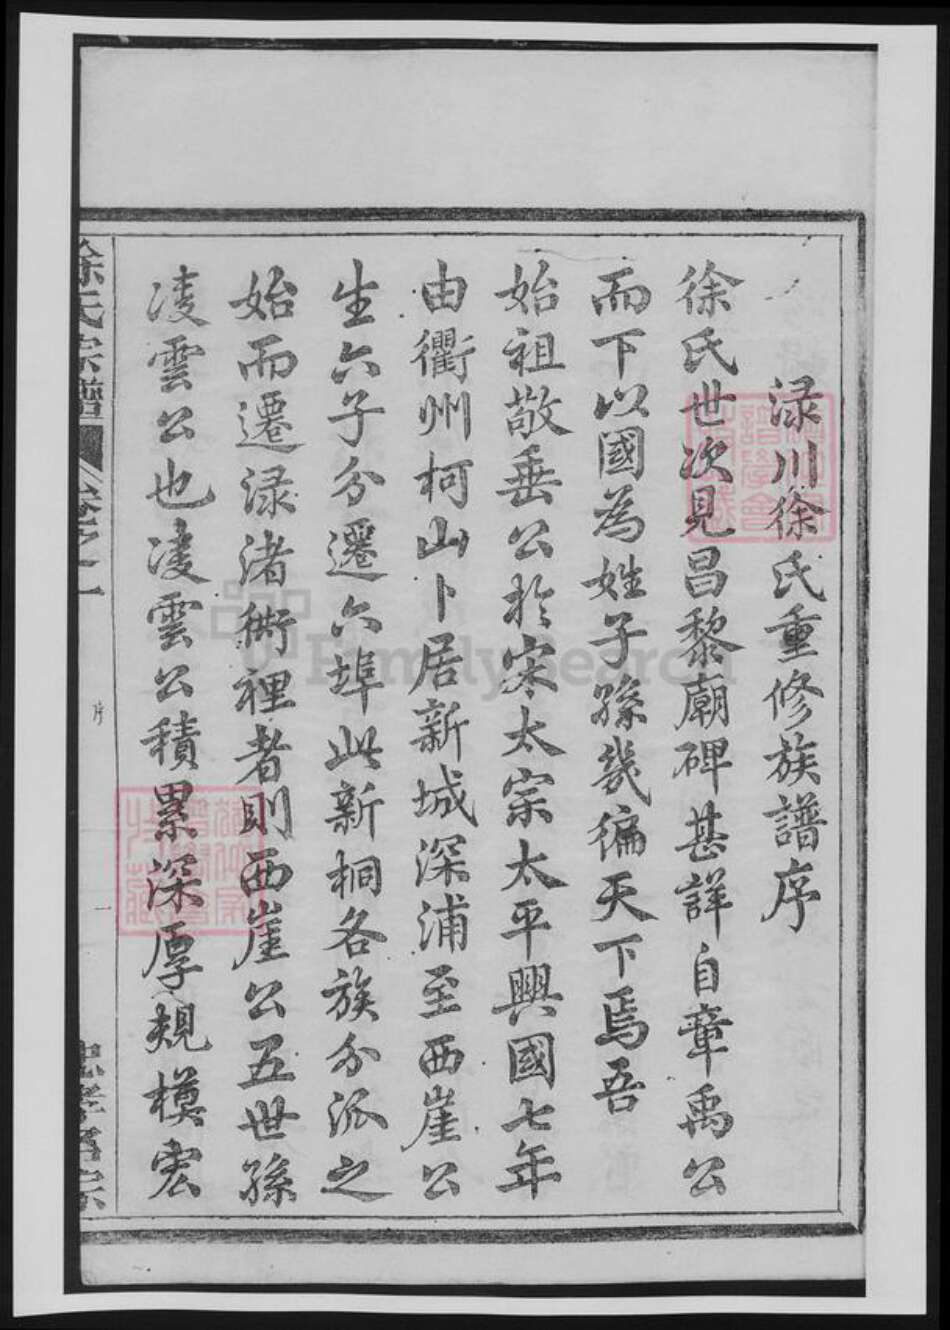 渌川徐氏重修族譜序
徐氏世次見昌黎廟碑甚詳自章禹公
而下以國為姓子孫幾徧天下焉吾
始祖敬垂公於宋太宗太平興國七年
由衢州柯山卜居新城深浦至西崖公
生六子分遷六埠此新桐各族分派之
始而遷渌渚衖裡者則西崖公五世孫
凌雲公也凌雲公積累深厚規模宏
徐氏宗譜 卷之一 序 一
FamilySearch